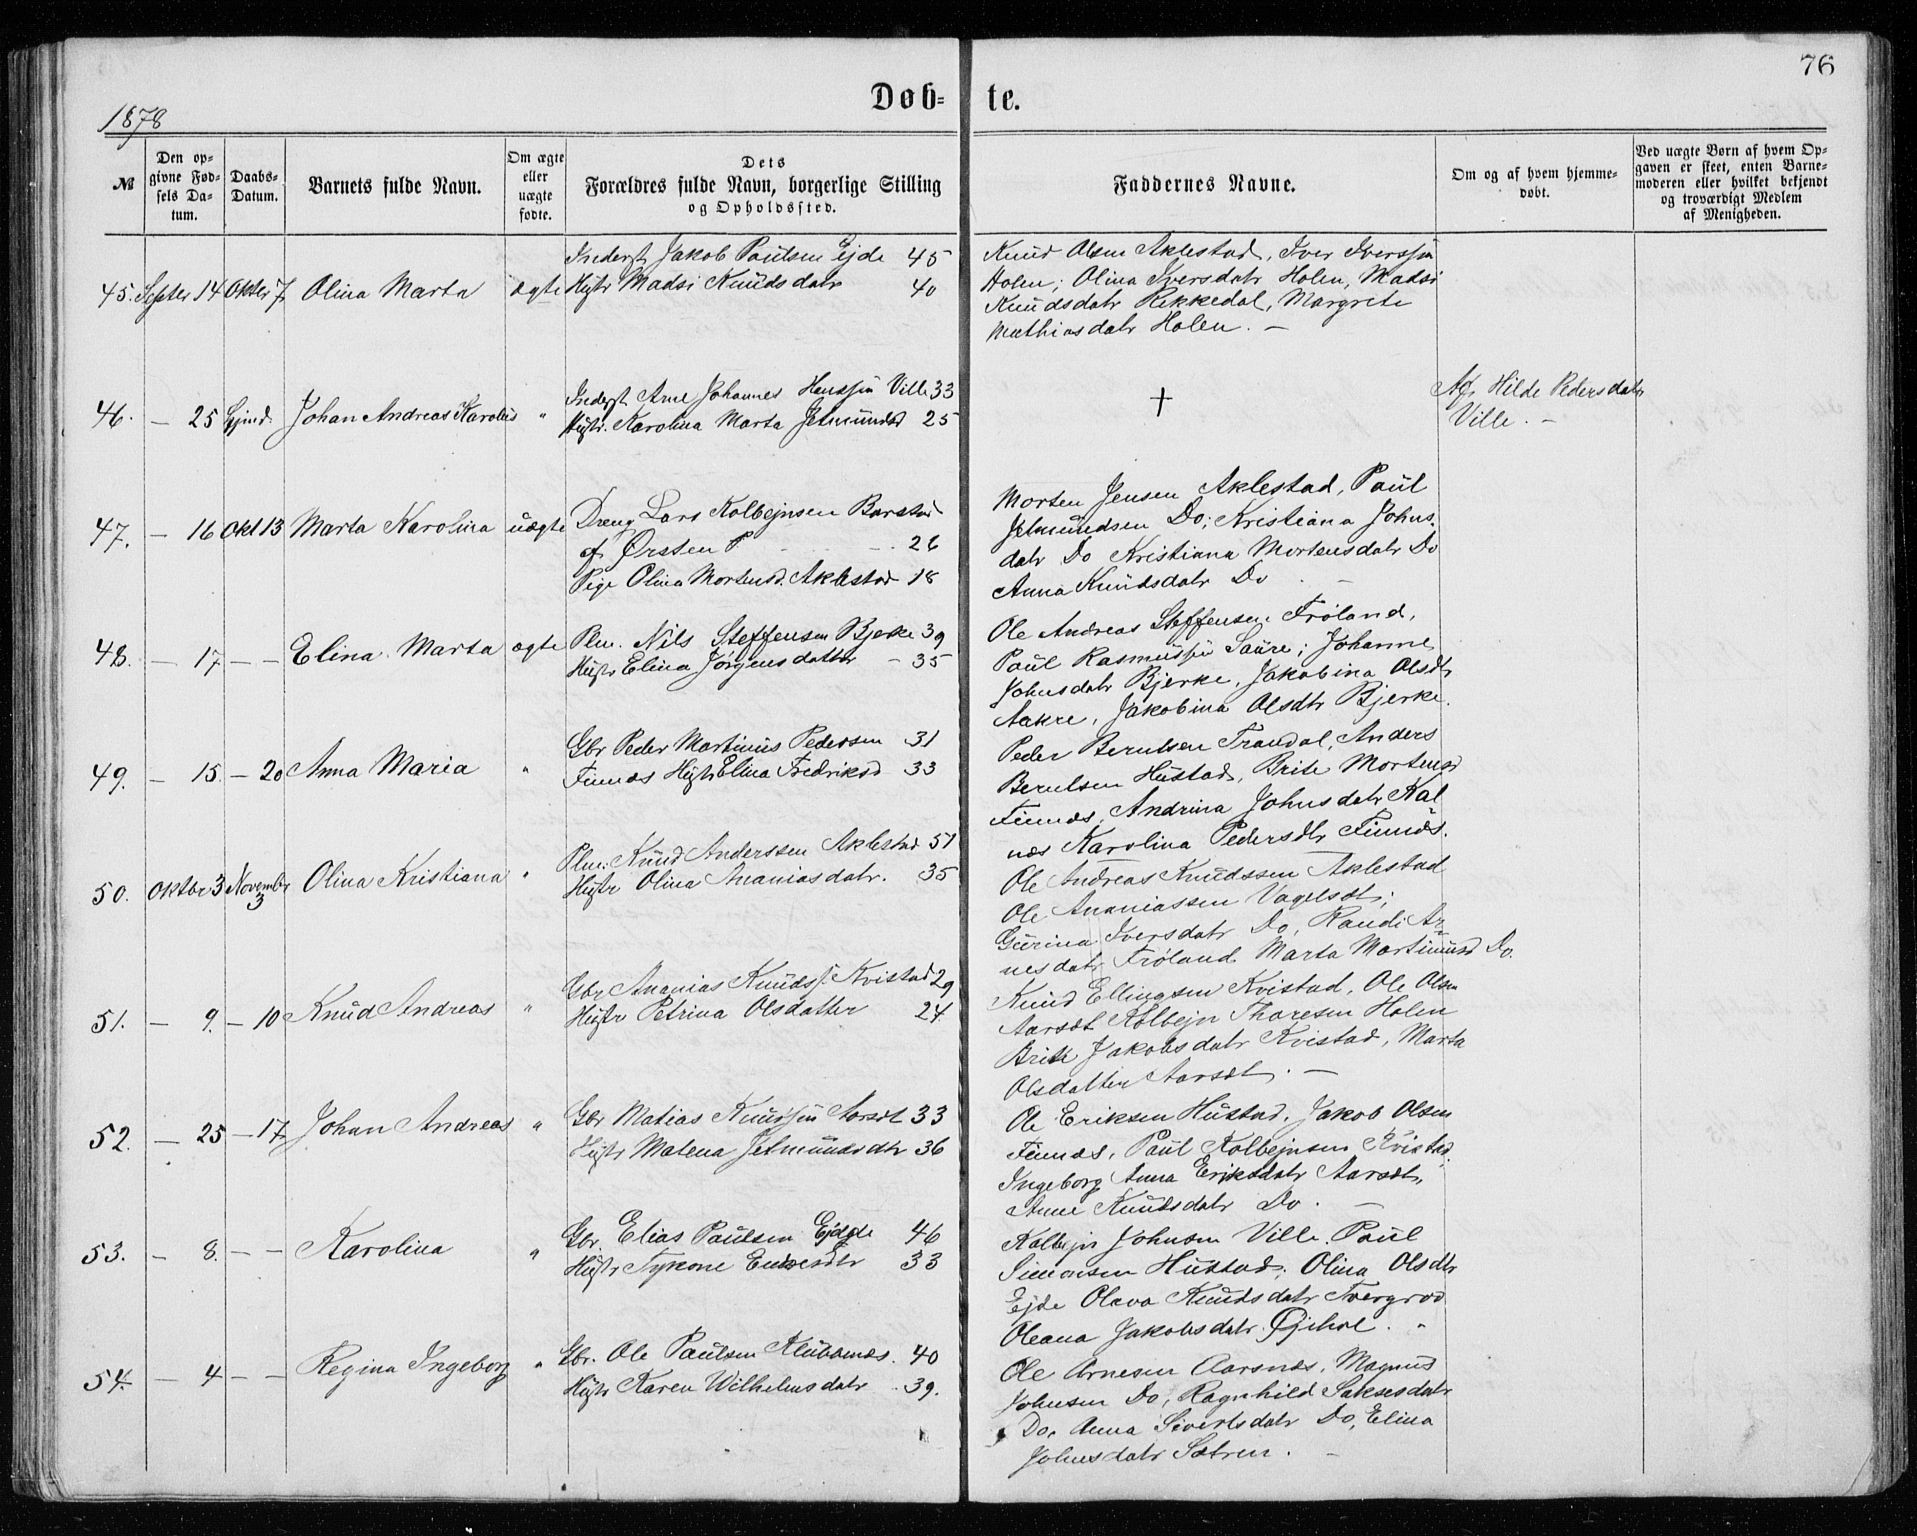 76
Døb-te.
1878
№
Den op-
givne Fød-
sels Da-
tum.
Daabs-
Datum.
Barnets fulde Navn.
Om ægte
eller
uægte
fødte.
Dets
Forældres fulde Navn, borgerlige Stilling
og Opholdssted.
Faddernes Navne.
Om og af hvem hjemme-
døbt.
Ved uægte Børn af hvem Op-
gaven er skeet, enten Barne-
moderen eller hvilket bekjendt
og troværdigt Medlem
af Menigheden.
45. Septer 14 Okter 7 Olina Marta ægte
Inderst Jakob Paulsen Ejde 45
Hustr Madsi Knudsdatr 40
Knud Olsen Aklestad, Iver Iverssøn
Holen; Olina Iversdatr Holen, Madsi
Knudsdatr Rekkedal, Margrete
Mathiasdatr Holen. —
46. — 25 Hjmd. Johan Andreas Karolus "
Inderst Arne Johannes Hanssøn Ville 33
Hustr. Karolina Marta Jetmundsd 25
+
Af Hilde Pedersdatr
Ville. —
47. — 16 Okt 13 Marta Karolina uægte
Dreng Lars Kolbejnsen Barstad
af Ørsten P. 26
Pige Olina Mortensd. Aklestad 18
Morten Jensen Aklestad, Paul
Jetmundsen Do; Kristiana Johns
datr Do Kristiana Mortensdatr Do
Anna Knudsdatr Do
48. — 17. — — Elina Marta ægte
Plm. Nils Steffensen Bjerke 39
Hustr Elina Jørgensdatter — 35
Ole Andreas Steffensen Frøland,
Paul Rasmussøn Saure; Johanne
Johnsdatr Bjerke, Jakobina Olsdtr
Aakre, Jakobina Olsdtr Bjerke.
49. — 15. — 20 Anna Maria "
Gbr Peder Martinus Pedersen 31
Finnæs Hustr Elina Fredriksd 33
Peder Berntsen Trandal, Anders
Berntsen Hustad, Brite Mortensd
Finnæs, Andrina Johnsdatr Kal
næs Karolina Pedersdtr Finnæs.
50. Oktbr 3 Novembr 3 Olina Kristiana "
Plm. Knud Anderssen Aklestad 51
Hustr Olina Ananiasdatr. 35
Ole Andreas Knudssen Aklestad
Ole Ananiassen Vagelsæt;
Gurina Iversdatr Do, Randi Ar-
nesdatr Frøland Marta Martinusd Do.
51. — 9. — 10 Knud Andreas "
Gbr Ananias Knuds. Kvistad 29
Hustr Petrina Olsdatter 24
Knud Ellingsen Kvistad, Ole Olsen
Aarsæt Kolbejn Thoresen Holen
Brite Jakobsdatr Kvistad, Marta
Olsdatter Aarsæt. —
52. — 25 — 17 Johan Andreas "
Gbr Matias Knudssøn Aarsæt 33
Hustr Matena Jetmundsdtr 36
Ole Eriksen Hustad, Jakob Olsen
Finnæs, Paul Kolbejnsen Kvistad
Ingeborg Anna Eriksdatr Aarsæt,
Anne Knudsdatr Do. —
53. — 8. — — Karolina "
Gbr. Elias Paulsen Ejde 46
Hustr 33
Kolbejn Johnsen Ville, Paul
Simonsen Hustad; Olina Olsdtr
Ejde Olava Knudsdatr Tvergrov
Oleana Jakobsdatr
54. — 4 — — Regina Ingeborg "
Gbr. Ole Paulsen Klubbenæs. 40
Hustr Karen Wilhelmsdatr 39.
Ole Arnesen Aarsnæs, Magnus
Johnsen Do, Ragnhild Saksesdatr
Do, Anna Sivertsdatr Do, Elina
Johnsdatr Sætren. —